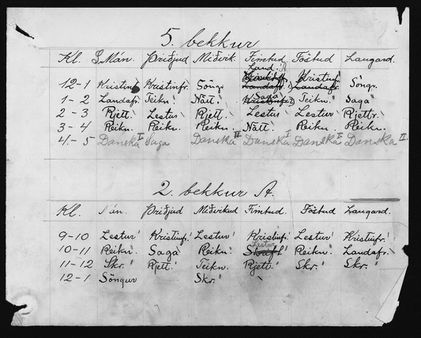 5. bekkur
Kl. Mán. Þriðjud Miðvik. Fimtud Föstud. Laugard.
Land.
12-1 Kristinf. Kristinfr. Söngr. Landafr. Kristinfr. Landafr. Söngr.
1-2 Landafr. Teikn. Nátt. Saga Kristinfr. Teikn. Saga
2-3 Rjett. Lestur Rjett. Lestur Lestur Rjettr.
3-4 Reikn. Reikn. Reikn. Nátt. Reikn. Reikn.
4-5 Danska I Saga Danska II Danska I Danska I Danska II
2. bekkur A.
Kl. Mán. Þriðjud Miðvikud Fimtud. Föstud Laugard.
9-10 Lestur Kristinfr. Lestur Kristinfr. Lestur Kristinfr.
10-11 Reikn. Saga Reikn. Lestur Reikn. Landafr.
11-12 Skr. Rjett. Teikn. Rjett. Skr. Skr.
12-1 Söngur Skr.